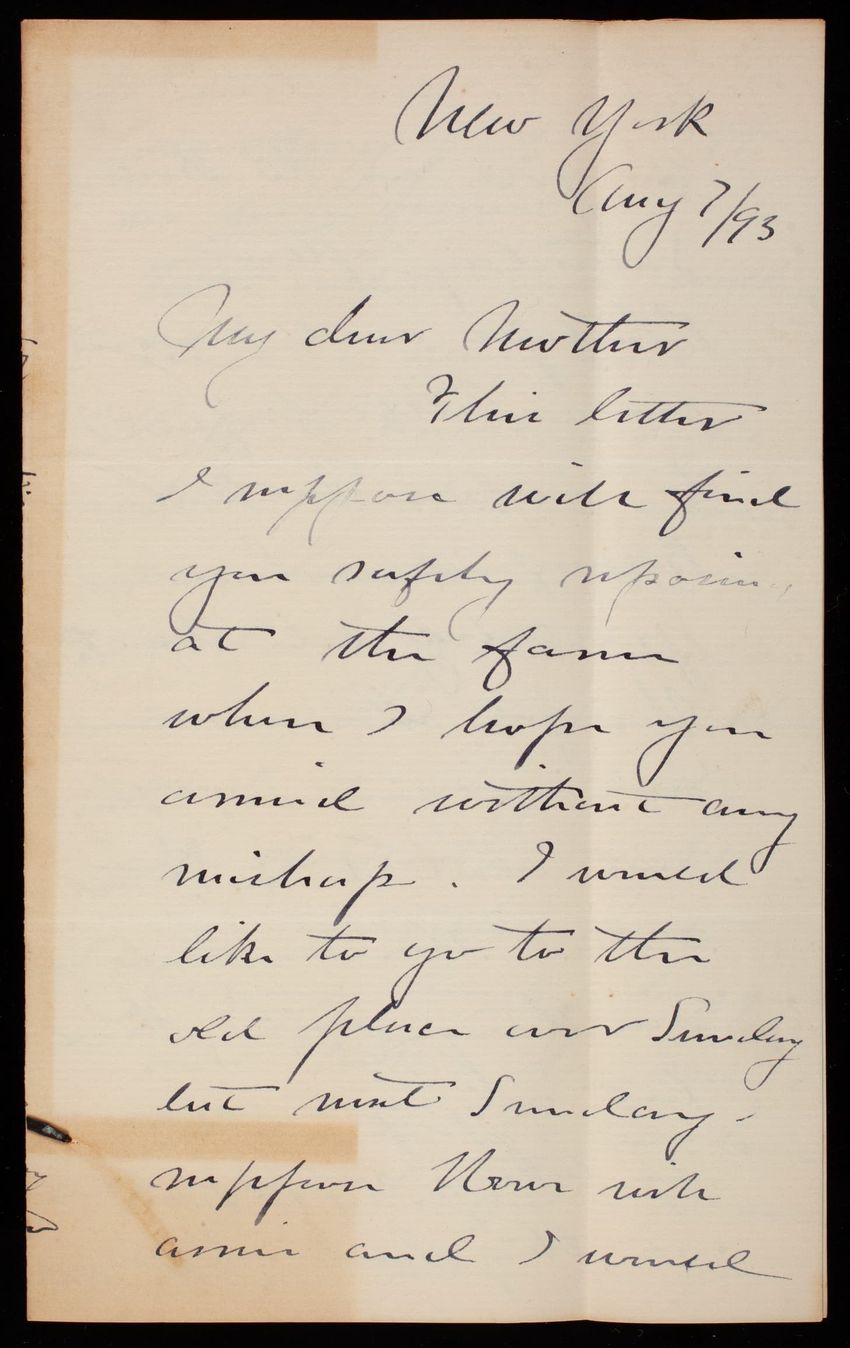 New York
Aug 7/93
My dear Mother
This letter
I suppose will find
you safely reposing
at the farm
where I hope you
arrived without any
mishap. I would
like to go to the
old place over Sunday
but next Sunday I
suppose will
arrive and I would